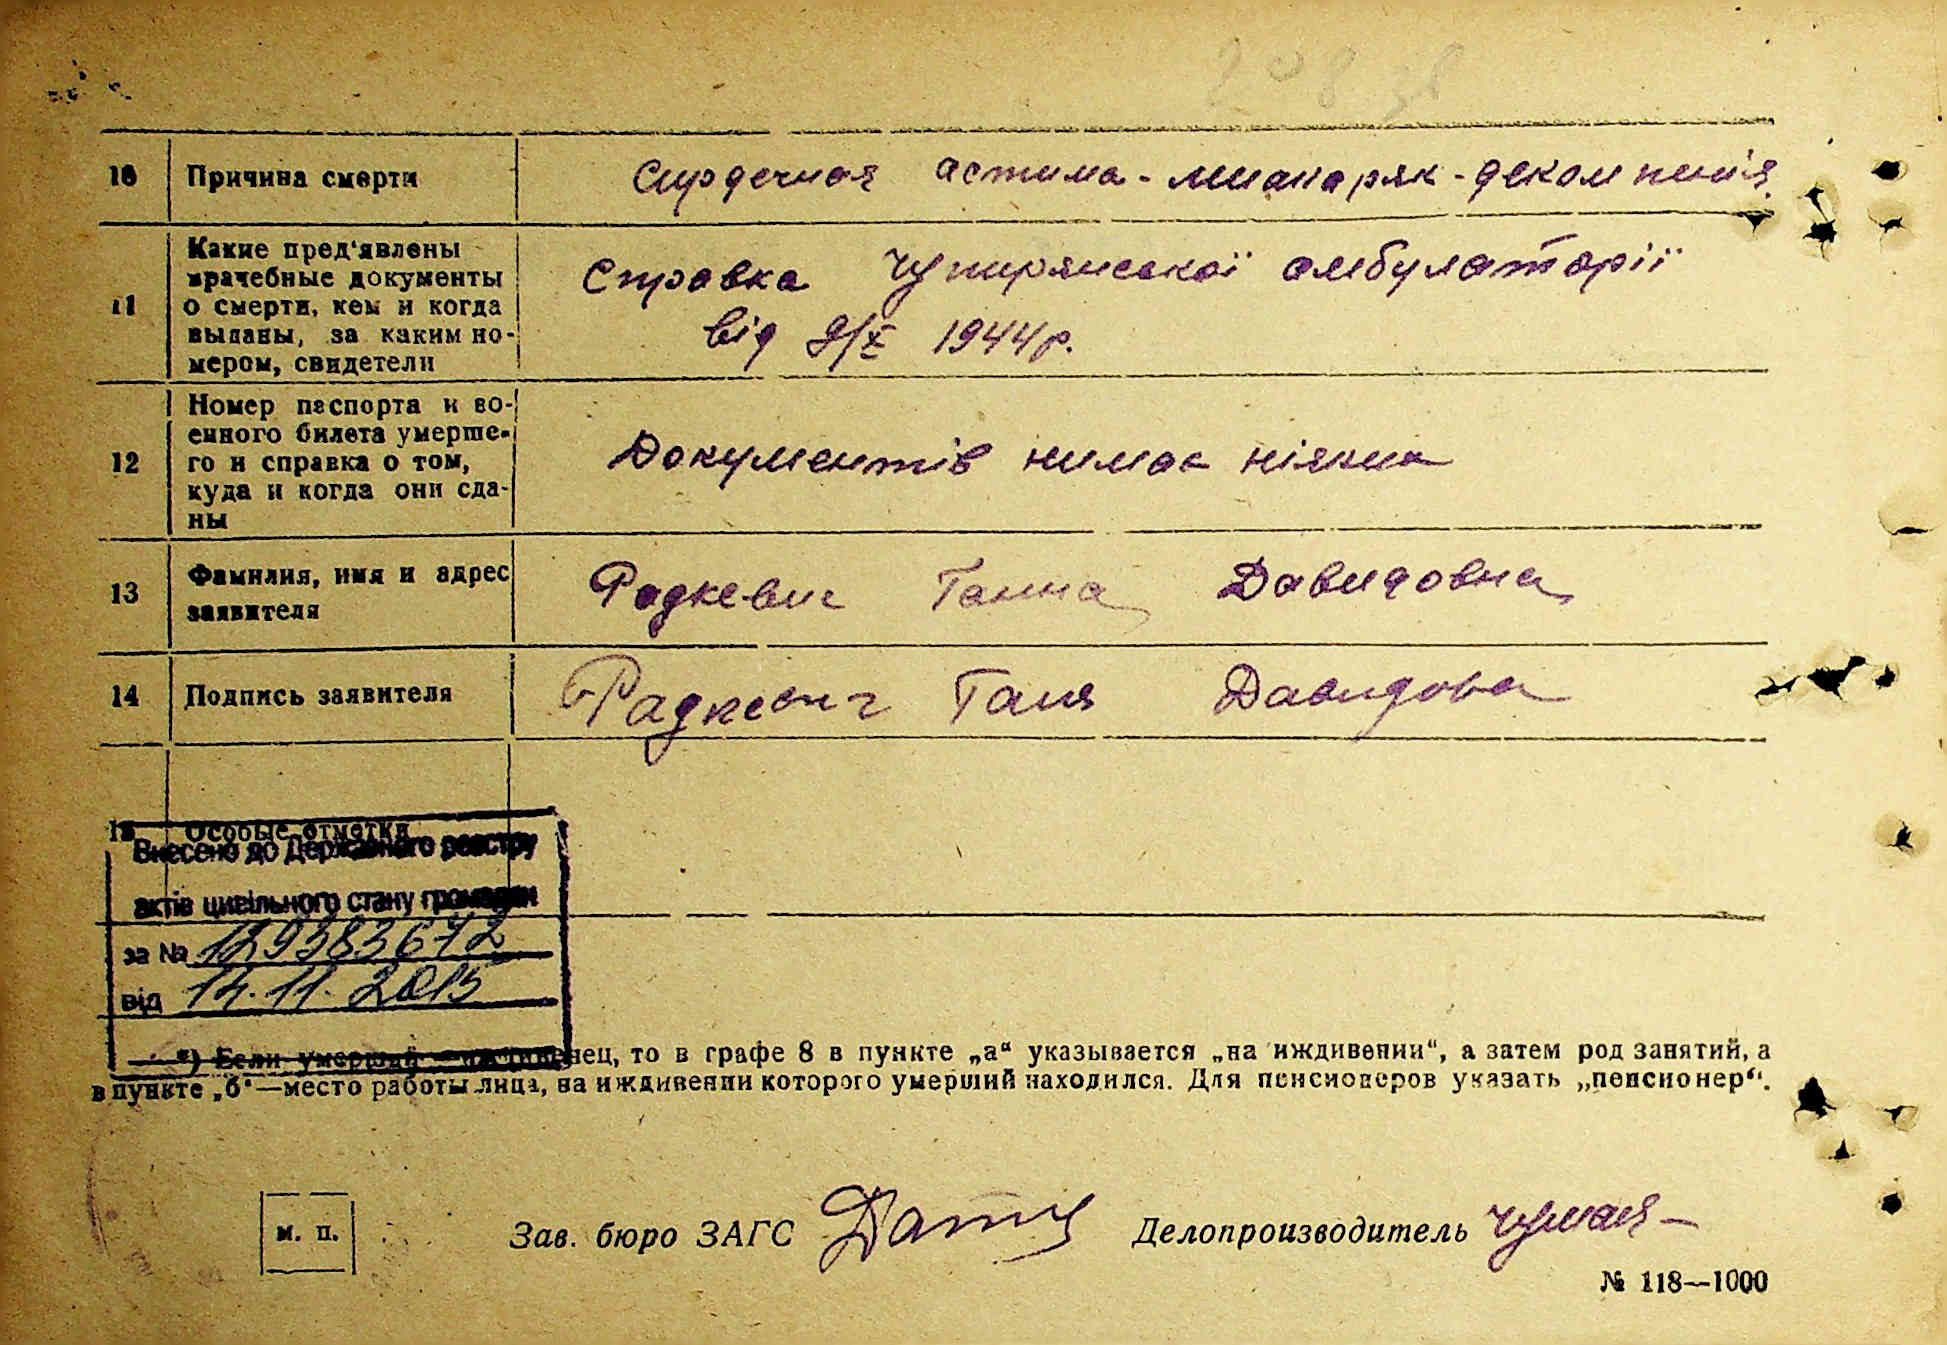 10 Причина смерти Сирдечная астима - миакаряк - декомпенія
11 Какие пред'явлены
врачебные документы
о смерти, кем и когда
выданы, за каким но-
мером, свидетели
Справка Чупирянської амбулаторії
від 9/X 1944 р.
12 Номер паспорта и во-
енного билета умерше-
го и справка о том,
куда и когда они сда-
ны
Документів нимає ніяких
13 Фамилия, имя и адрес
заявителя
Радкевич Ганна Давидовна
14 Подпись заявителя Радкевич Галя Давидовна
15 Особые отметки
Внесено до Державного реєстру
актів цивільного стану громадян
за № 129383672
від 14.11.2015
*) Если умерший — иждивенец, то в графе 8 в пункте „а“ указывается „на иждивении“, а затем род занятий, а
в пункте „б“—место работы лица, на иждивении которого умерший находился. Для пенсионеров указать „пенсионер“.
м. п. Зав. бюро ЗАГС Делопроизводитель
№ 118—1000